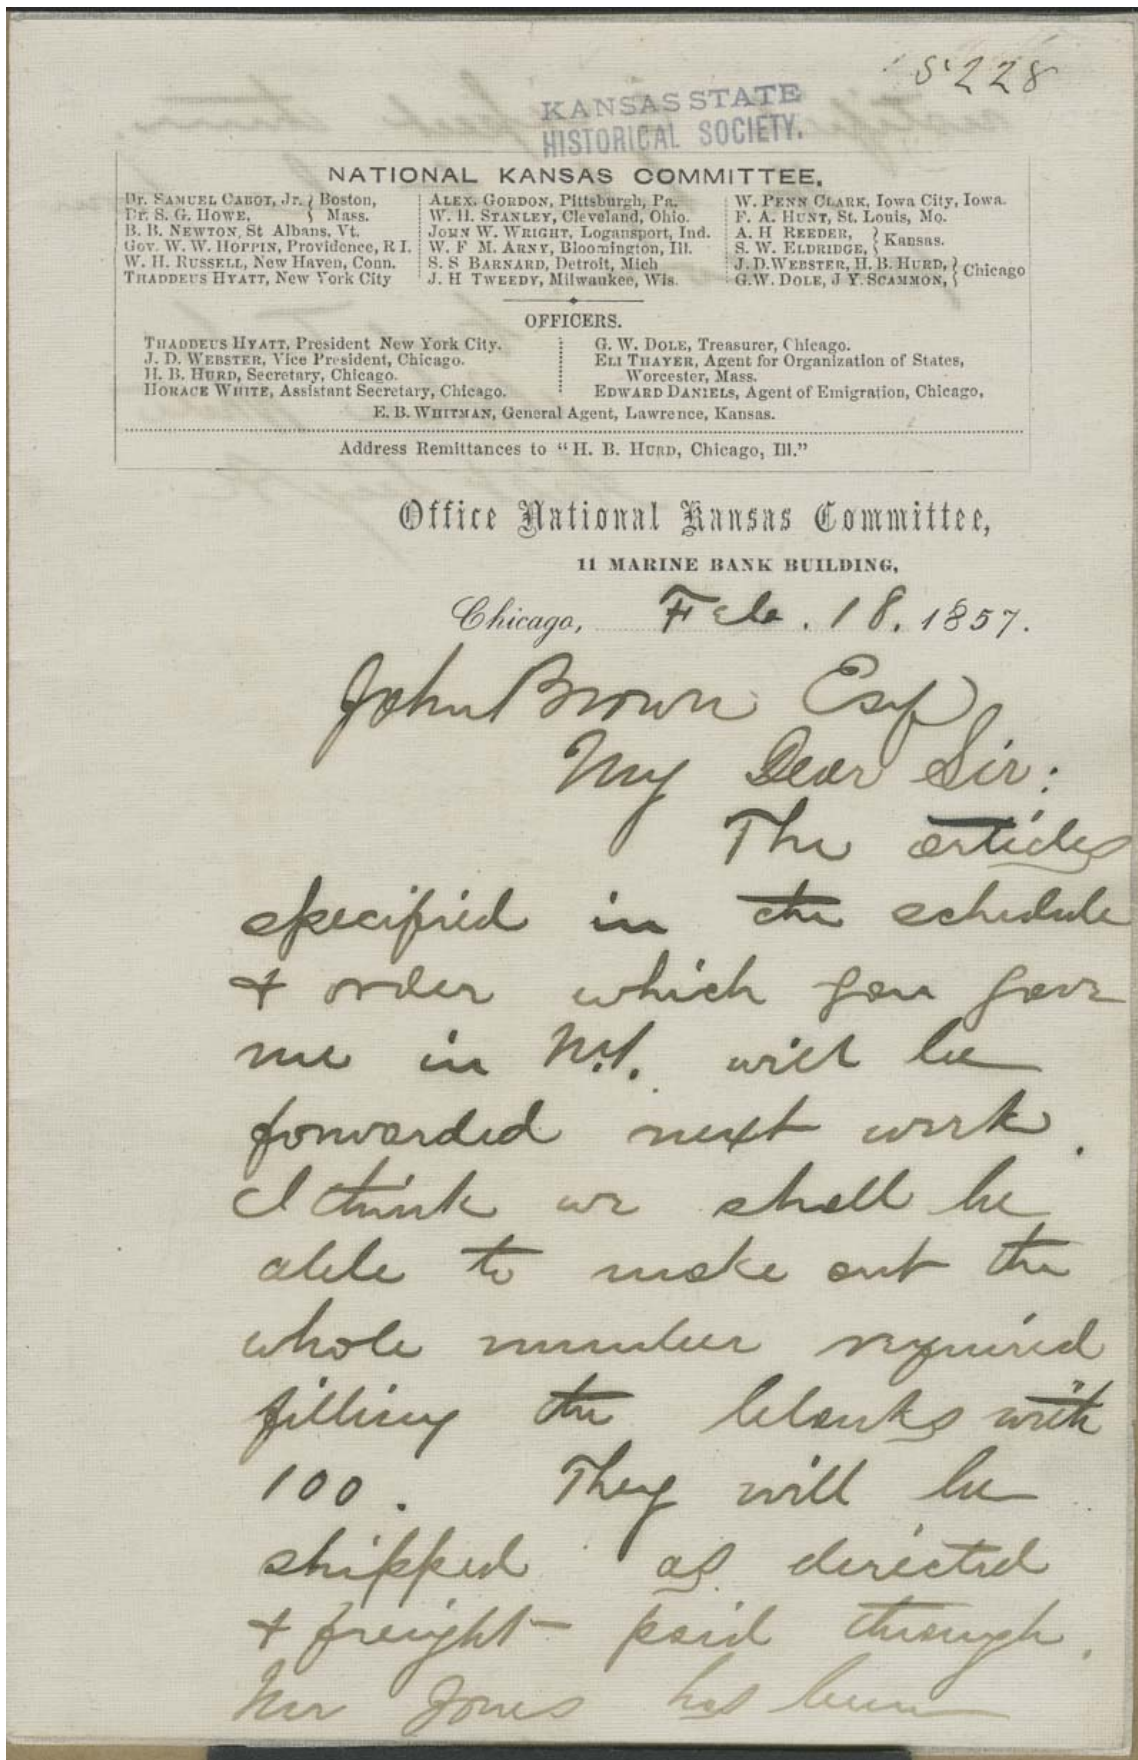 5228
KANSAS STATE
HISTORICAL SOCIETY.
NATIONAL KANSAS COMMITTEE,
Dr. SAMUEL CABOT, Jr. } Boston,
Dr. S. G. HOWE, } Mass.
B. B. NEWTON, St Albans, Vt.
Gov. W. W. HOPPIN, Providence, R I.
W. H. RUSSELL, New Haven, Conn.
THADDEUS HYATT, New York City
ALEX. GORDON, Pittsburgh, Pa.
W. H. STANLEY, Cleveland, Ohio.
JOHN W. WRIGHT, Logansport, Ind.
W. F M. ARNY, Bloomington, Ill.
S. S BARNARD, Detroit, Mich
J. H TWEEDY, Milwaukee, Wis.
W. PENN CLARK, Iowa City, Iowa.
F. A. HUNT, St. Louis, Mo.
A. H REEDER, } Kansas.
S. W. ELDRIDGE,
J. D. WEBSTER, H. B. HURD, } Chicago
G. W. DOLE, J Y. SCAMMON,
OFFICERS.
THADDEUS HYATT, President New York City.
J. D. WEBSTER, Vice President, Chicago.
H. B. HURD, Secretary, Chicago.
HORACE WHITE, Assistant Secretary, Chicago.
G. W. DOLE, Treasurer, Chicago.
ELI THAYER, Agent for Organization of States,
Worcester, Mass.
EDWARD DANIELS, Agent of Emigration, Chicago,
E. B. WHITMAN, General Agent, Lawrence, Kansas.
Address Remittances to "H. B. HURD, Chicago, Ill."
Office National Kansas Committee,
11 MARINE BANK BUILDING,
Chicago, Feb. 18. 1857.
John Brown Esq
My Dear Sir:
The articles
specified in the schedule
& order which you gave
me in N.Y. will be
forwarded next week.
I think we shall be
able to make out the
whole number required
filling the blanks with
100. They will be
shipped as directed
& freight paid through.
Mr Jones has been